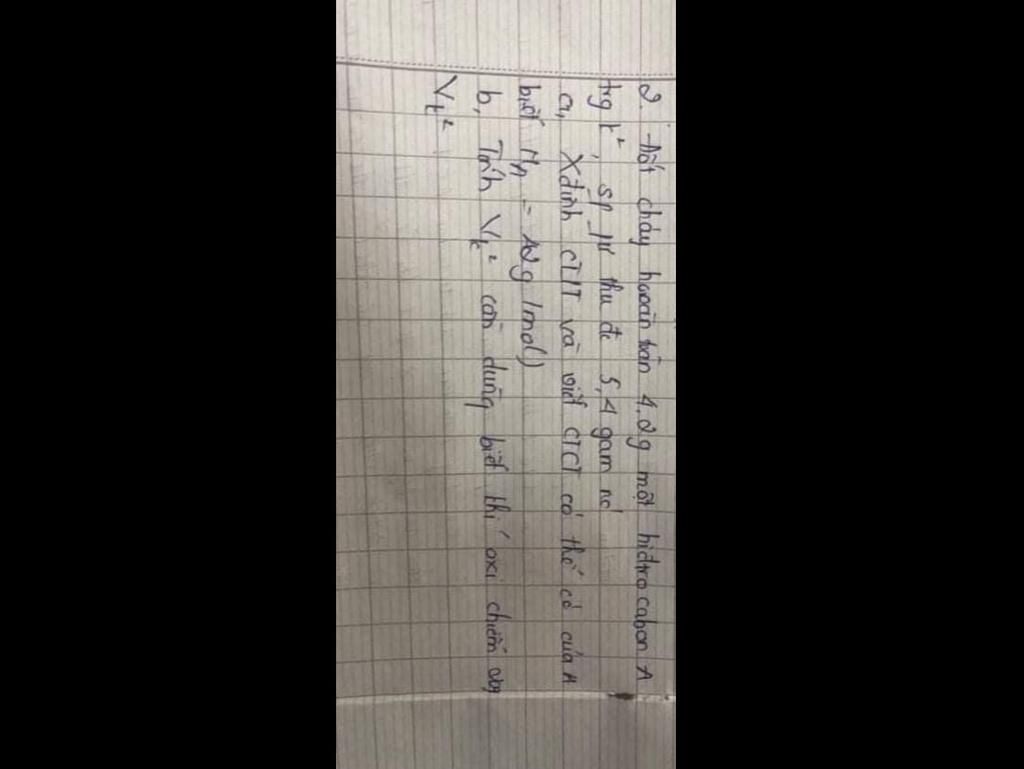 2. Đốt cháy hoàn toàn 4,2g một hiđrocacbon A
trg k², sp pứ thu đc 5,4 gam nc
a, Xđịnh CTPT và viết CTCT có thể có của A
biết M = 42g/mol)
b, Tính Vk² cần dùng biết thí oxi chiếm
Vk²